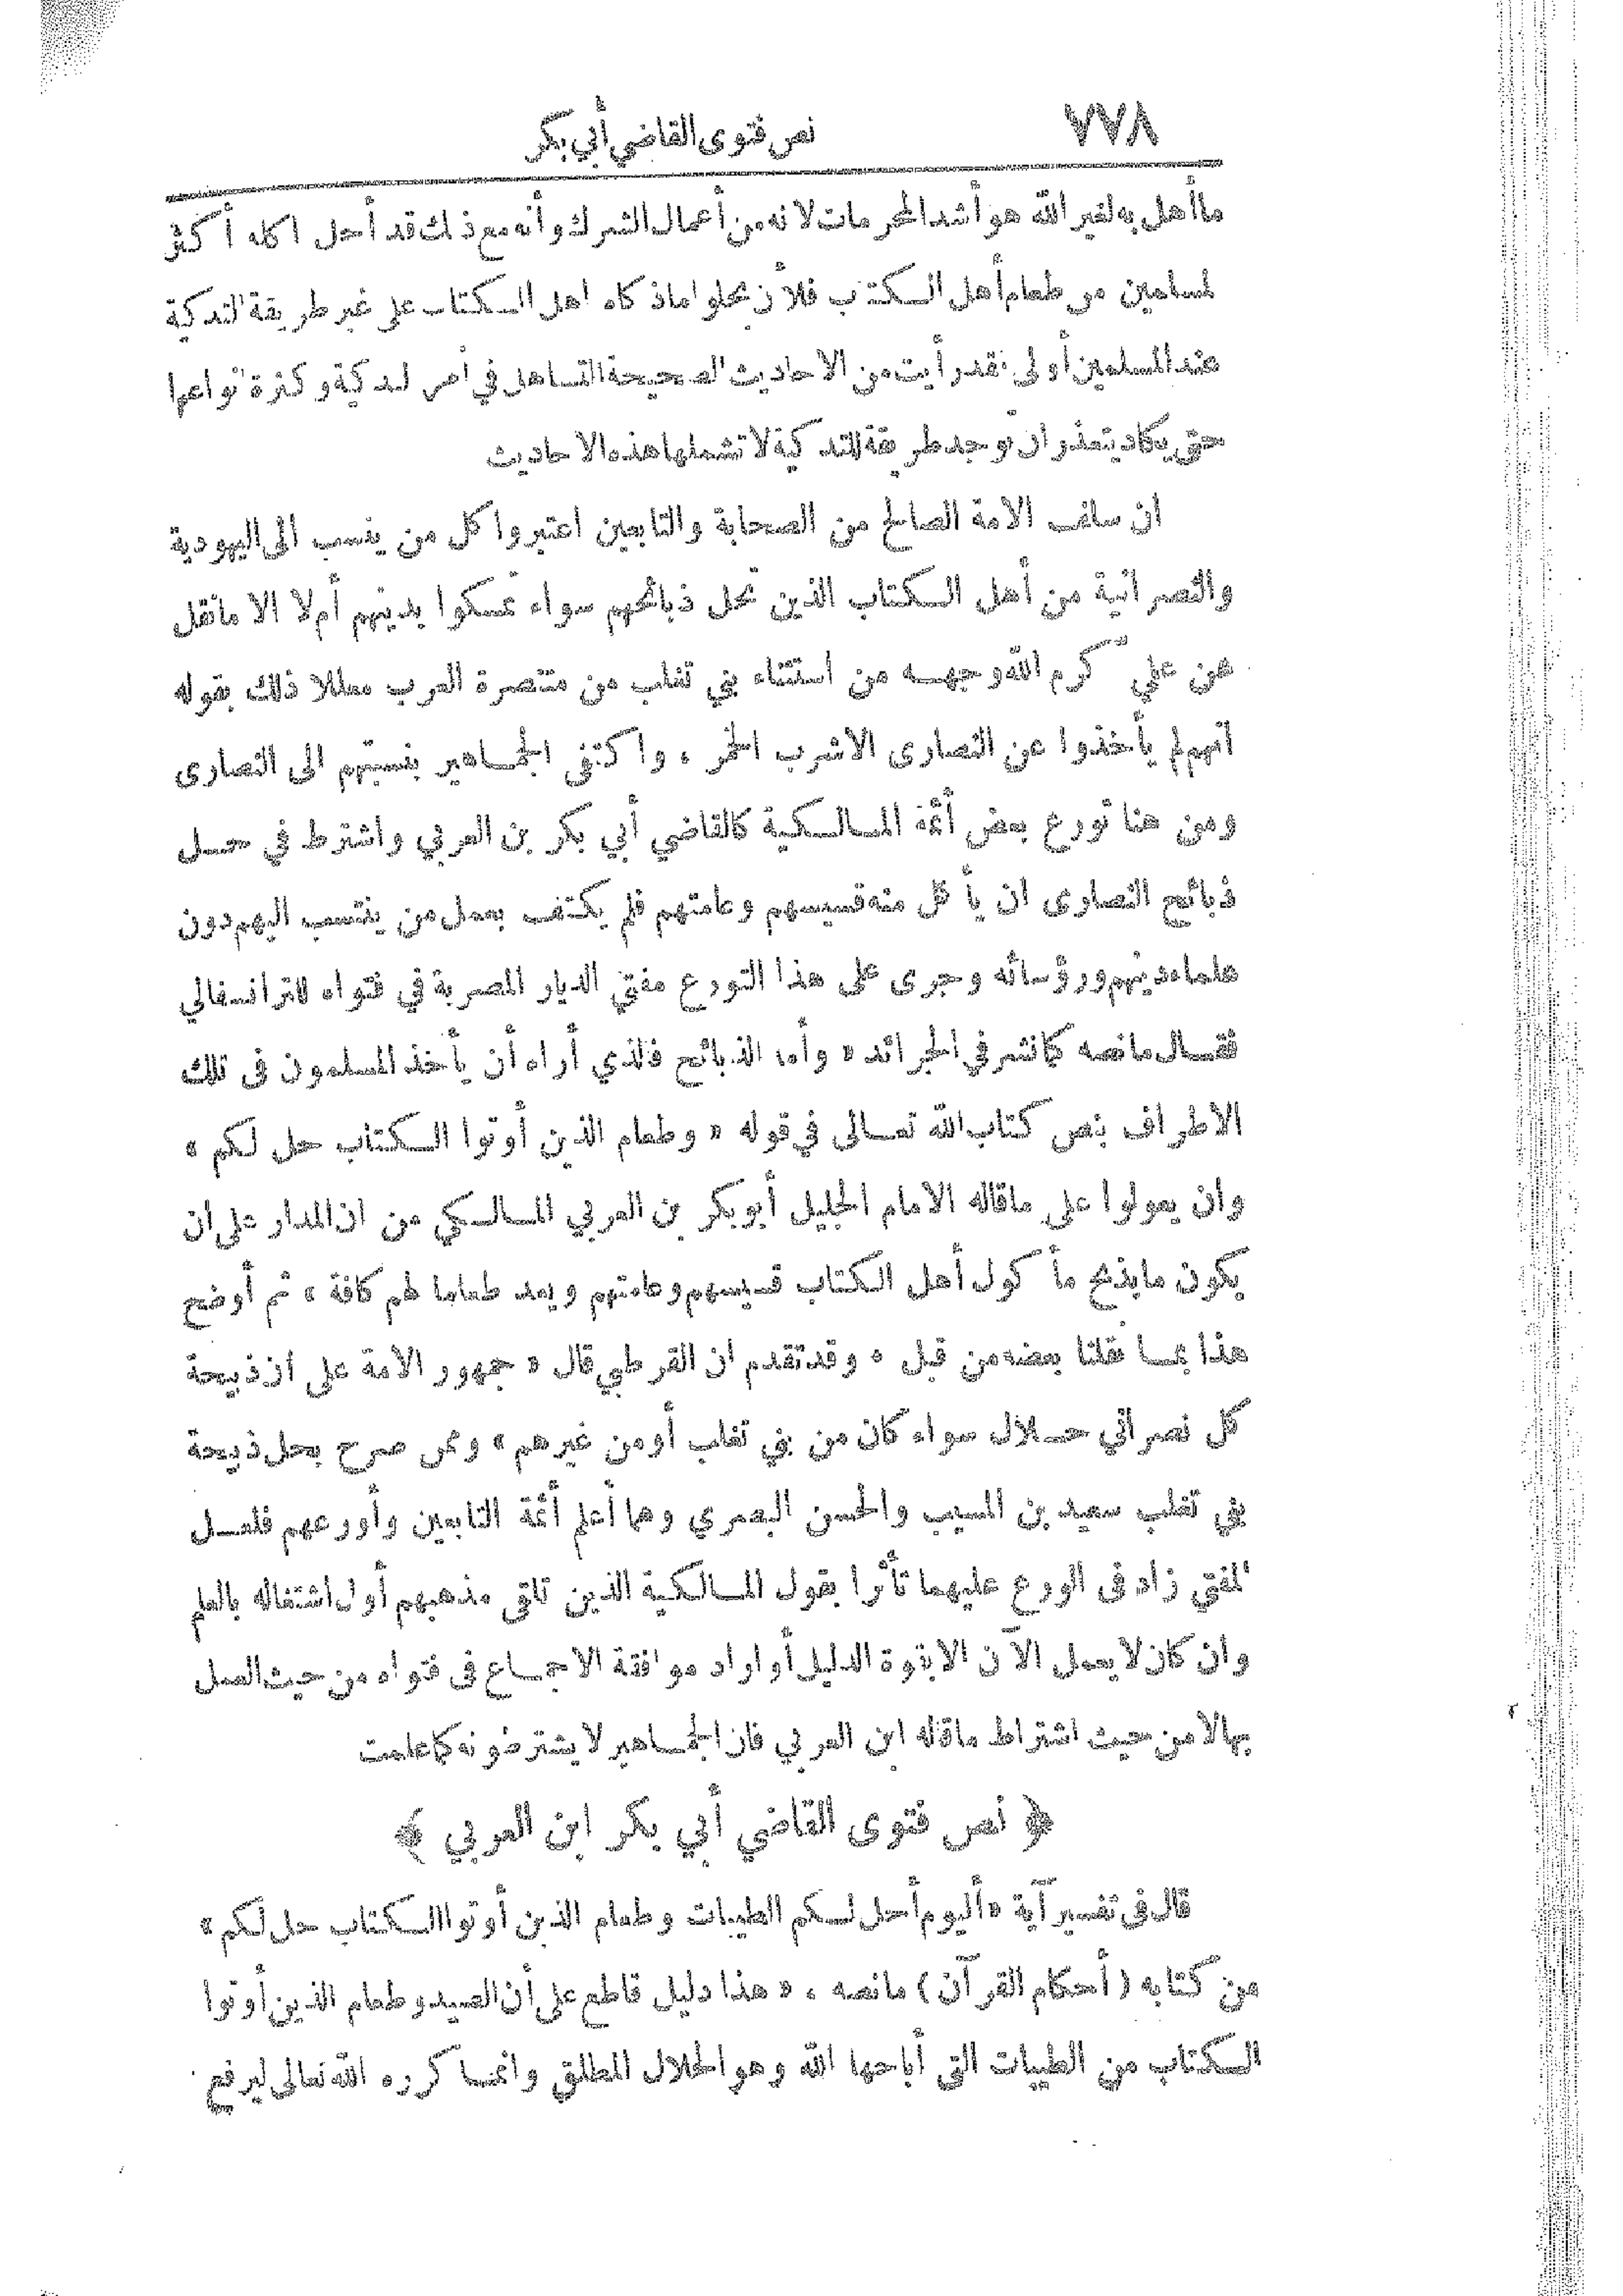 ٧٧٨ نص فتوى القاضي أبي بكر
ما أهل به لغير الله هو أشد المحرمات لانه من أعمال الشرك وأنه مع ذلك قد أحل اكله أكثر
المسلمين من طعام أهل الكتاب فلأن يحلوا ما ذكاه اهل الكتاب على غير طريقة التذكية
عند المسلمين أولى فقد رأيت من الاحاديث الصحيحة التساهل في أمر التذكية وكثرة انواعها
حتى يكاد يتعذر ان توجد طريقة للتذكية لا تشملها هذه الاحاديث
ان سلف الامة الصالح من الصحابة والتابعين اعتبروا كل من ينسب الى اليهودية
والنصرانية من أهل الكتاب الذين تحل ذبائحهم سواء تمسكوا بدينهم أم لا الا ما نقل
عن علي كرم الله وجهه من استثناء بني تغلب من متنصرة العرب معللا ذلك بقوله
انهم لم يأخذوا عن النصارى الا شرب الخمر ، واكتفى الجماهير بنسبتهم الى النصارى
ومن هنا تورع بعض أئمة المالكية كالقاضي أبي بكر بن العربي واشترط في حل
ذبائح النصارى ان يأكل منه قسيسهم وعامتهم فلم يكتف بعمل من ينتسب اليهم دون
علماء دينهم ورؤسائه وجرى على هذا التورع مفتي الديار المصرية في فتواه للترانسفالي
فقال ما نصه كما نشر في الجرائد « وأما الذبائح فالذي أراه أن يأخذ المسلمون في تلك
الاطراف بنص كتاب الله تعالى في قوله « وطعام الذين أوتوا الكتاب حل لكم »
وان يعولوا على ما قاله الامام الجليل أبو بكر بن العربي المالكي من ان المدار على ان
يكون ما يذبح مأكول أهل الكتاب قسيسهم وعامتهم ويعد طعاما لهم كافة » ثم أوضح
هذا بما نقلنا بعضه من قبل ، وقد تقدم ان القرطبي قال « جمهور الامة على ان ذبيحة
كل نصراني حلال سواء كان من بني تغلب أو من غيرهم » وممن صرح بحل ذبيحة
بني تغلب سعيد بن المسيب والحسن البصري وهما أعلم أئمة التابعين وأورعهم فلعل
المفتي زاد في الورع عليهما تأثرا بقول المالكية الذين تلقى مذهبهم أول اشتغاله بالعلم
وان كان لا يعمل الآن الا بقوة الدليل أو اراد موافقة الاجماع في فتواه من حيث العمل
بها لا من حيث اشتراط ما قاله ابن العربي فان الجماهير لا يشترطونه كما علمت
﴿ نص فتوى القاضي أبي بكر ابن العربي ﴾
قال في تفسير آية « أليوم أحل لكم الطيبات وطعام الذين أوتوا الكتاب حل لكم »
من كتابه ( أحكام القرآن ) ما نصه ، « هذا دليل قاطع على أن الصيد وطعام الذين أوتوا
الكتاب من الطيبات التي أباحها الله وهو الحلال المطلق وانما كرره الله تعالى ليرفع